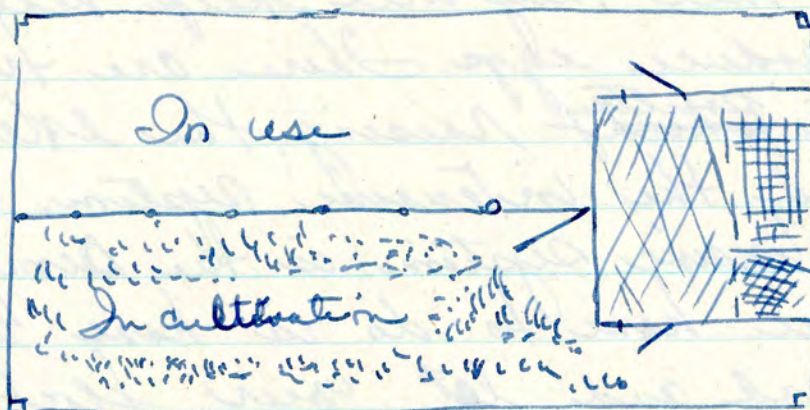 In use
In cultivation